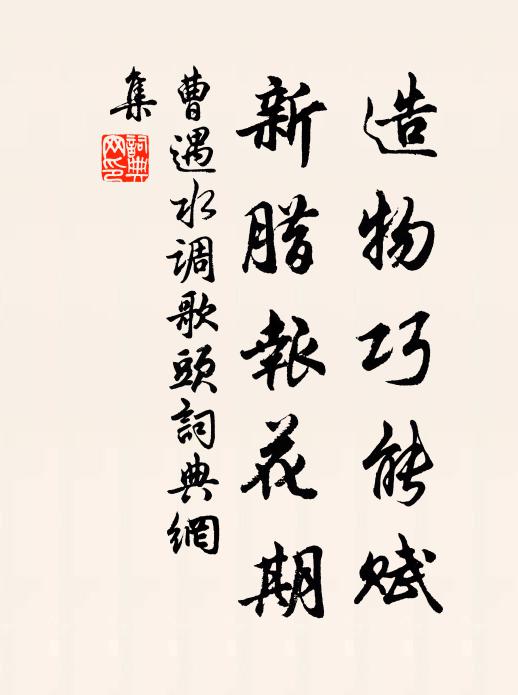 造物巧能赋
新腊報花期
曹遇水调歌頭詞典網
集
詞典网印